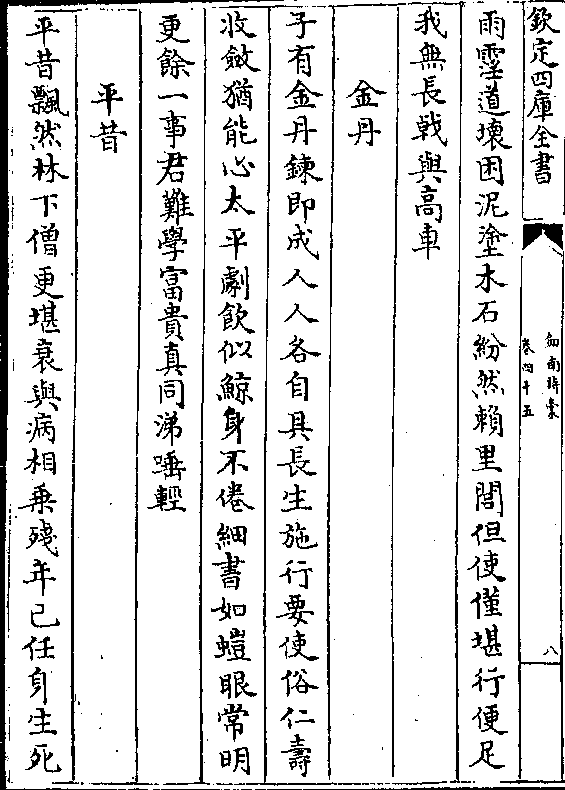 欽定四庫全書
劍南詩稾
卷四十五
八
雨霪道壞困泥塗木石紛然賴里閭但使僅堪行便足
我無長戟與高車
金丹
子有金丹鍊即成人人各自具長生施行要使俗仁壽
收斂猶能心太平劇飲似鯨身不倦細書如螘眼常明
更餘一事君難學富貴真同涕唾輕
平昔
平昔飄然林下僧更堪衰與病相乗殘年已任身生死